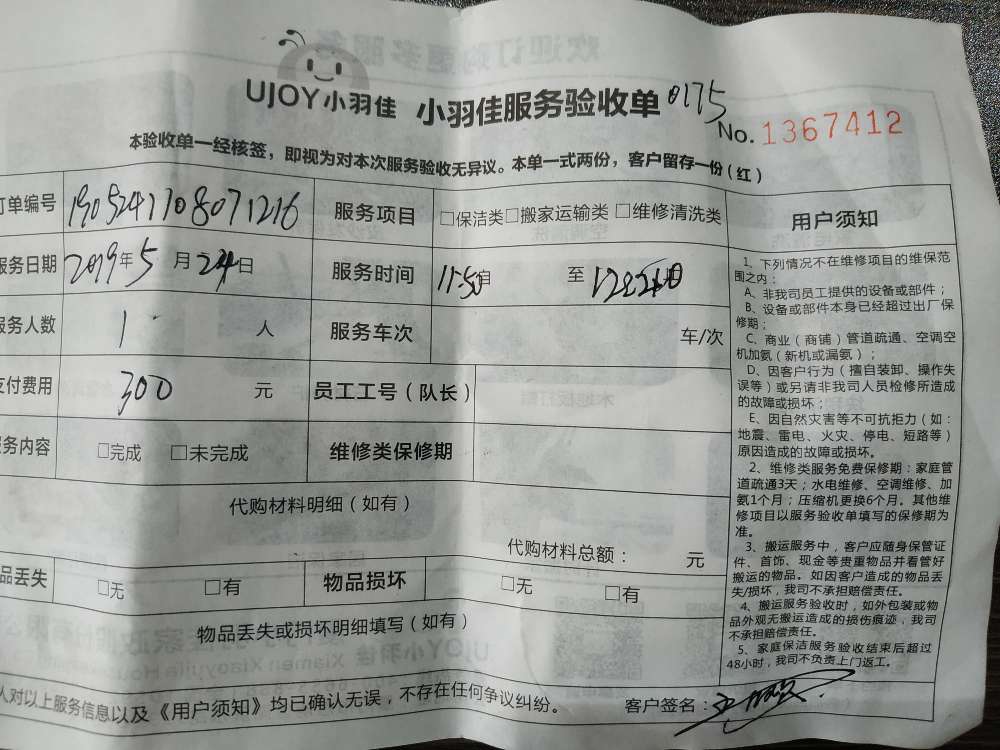 UJOY小羽佳 小羽佳服务验收单 0175
No. 1367412
本验收单一经核签，即视为对本次服务验收无异议。本单一式两份，客户留存一份（红）
订单编号 1905241108071216 服务项目 □保洁类□搬家运输类 □维修清洗类
服务日期 2019年 5 月 24日 服务时间 11:50 至
服务人数 1 人 服务车次 车/次
支付费用 300 元 员工工号（队长）
服务内容 □完成 □未完成 维修类保修期
代购材料明细（如有）
代购材料总额： 元
品丢失 □无 □有 物品损坏 □无 □有
物品丢失或损坏明细填写（如有）
人对以上服务信息以及《用户须知》均已确认无误，不存在任何争议纠纷。 客户签名：
用户须知
1、下列情况不在维修项目的维保范
围之内：
A、非我司员工提供的设备或部件；
B、设备或部件本身已经超过出厂保
修期；
C、商业（商铺）管道疏通、空调空
机加氨（新机或漏氨）；
D、因客户行为（擅自装卸、操作失
误等）或另请非我司人员检修所造成
的故障或损坏；
E、因自然灾害等不可抗拒力（如：
地震、雷电、火灾、停电、短路等）
原因造成的故障或损坏。
2、维修类服务免费保修期：家庭管
道疏通3天；水电维修、空调维修、加
氨1个月；压缩机更换6个月。其他维
修项目以服务验收单填写的保修期为
准。
3、搬运服务中，客户应随身保管证
件、首饰、现金等贵重物品并看管好
搬运的物品。如因客户造成的物品丢
失/损坏，我司不承担赔偿责任。
4、搬运服务验收时，如外包装或物
品外观无搬运造成的损伤痕迹，我司
不承担赔偿责任。
5、家庭保洁服务验收结束后超过
48小时，我司不负责上门返工。